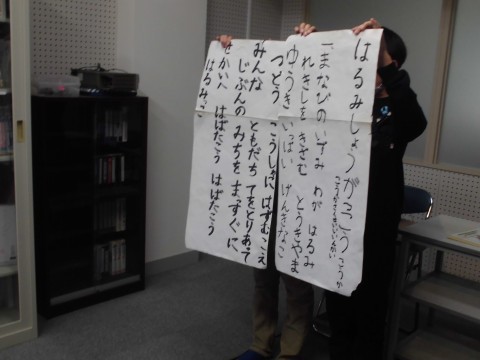 はるみしょうがっこう こうか
一まなびのいずみ わが はるみ
れきしを きざむ とうきやま
ゆうき いっぱい げんきなこ
つどう こうしゃに はずむ こえ
みんな ともだち てをとりあって
じぶんの みちを まっすぐに
せかいへ はばたこう はばたこう
はるみっこ